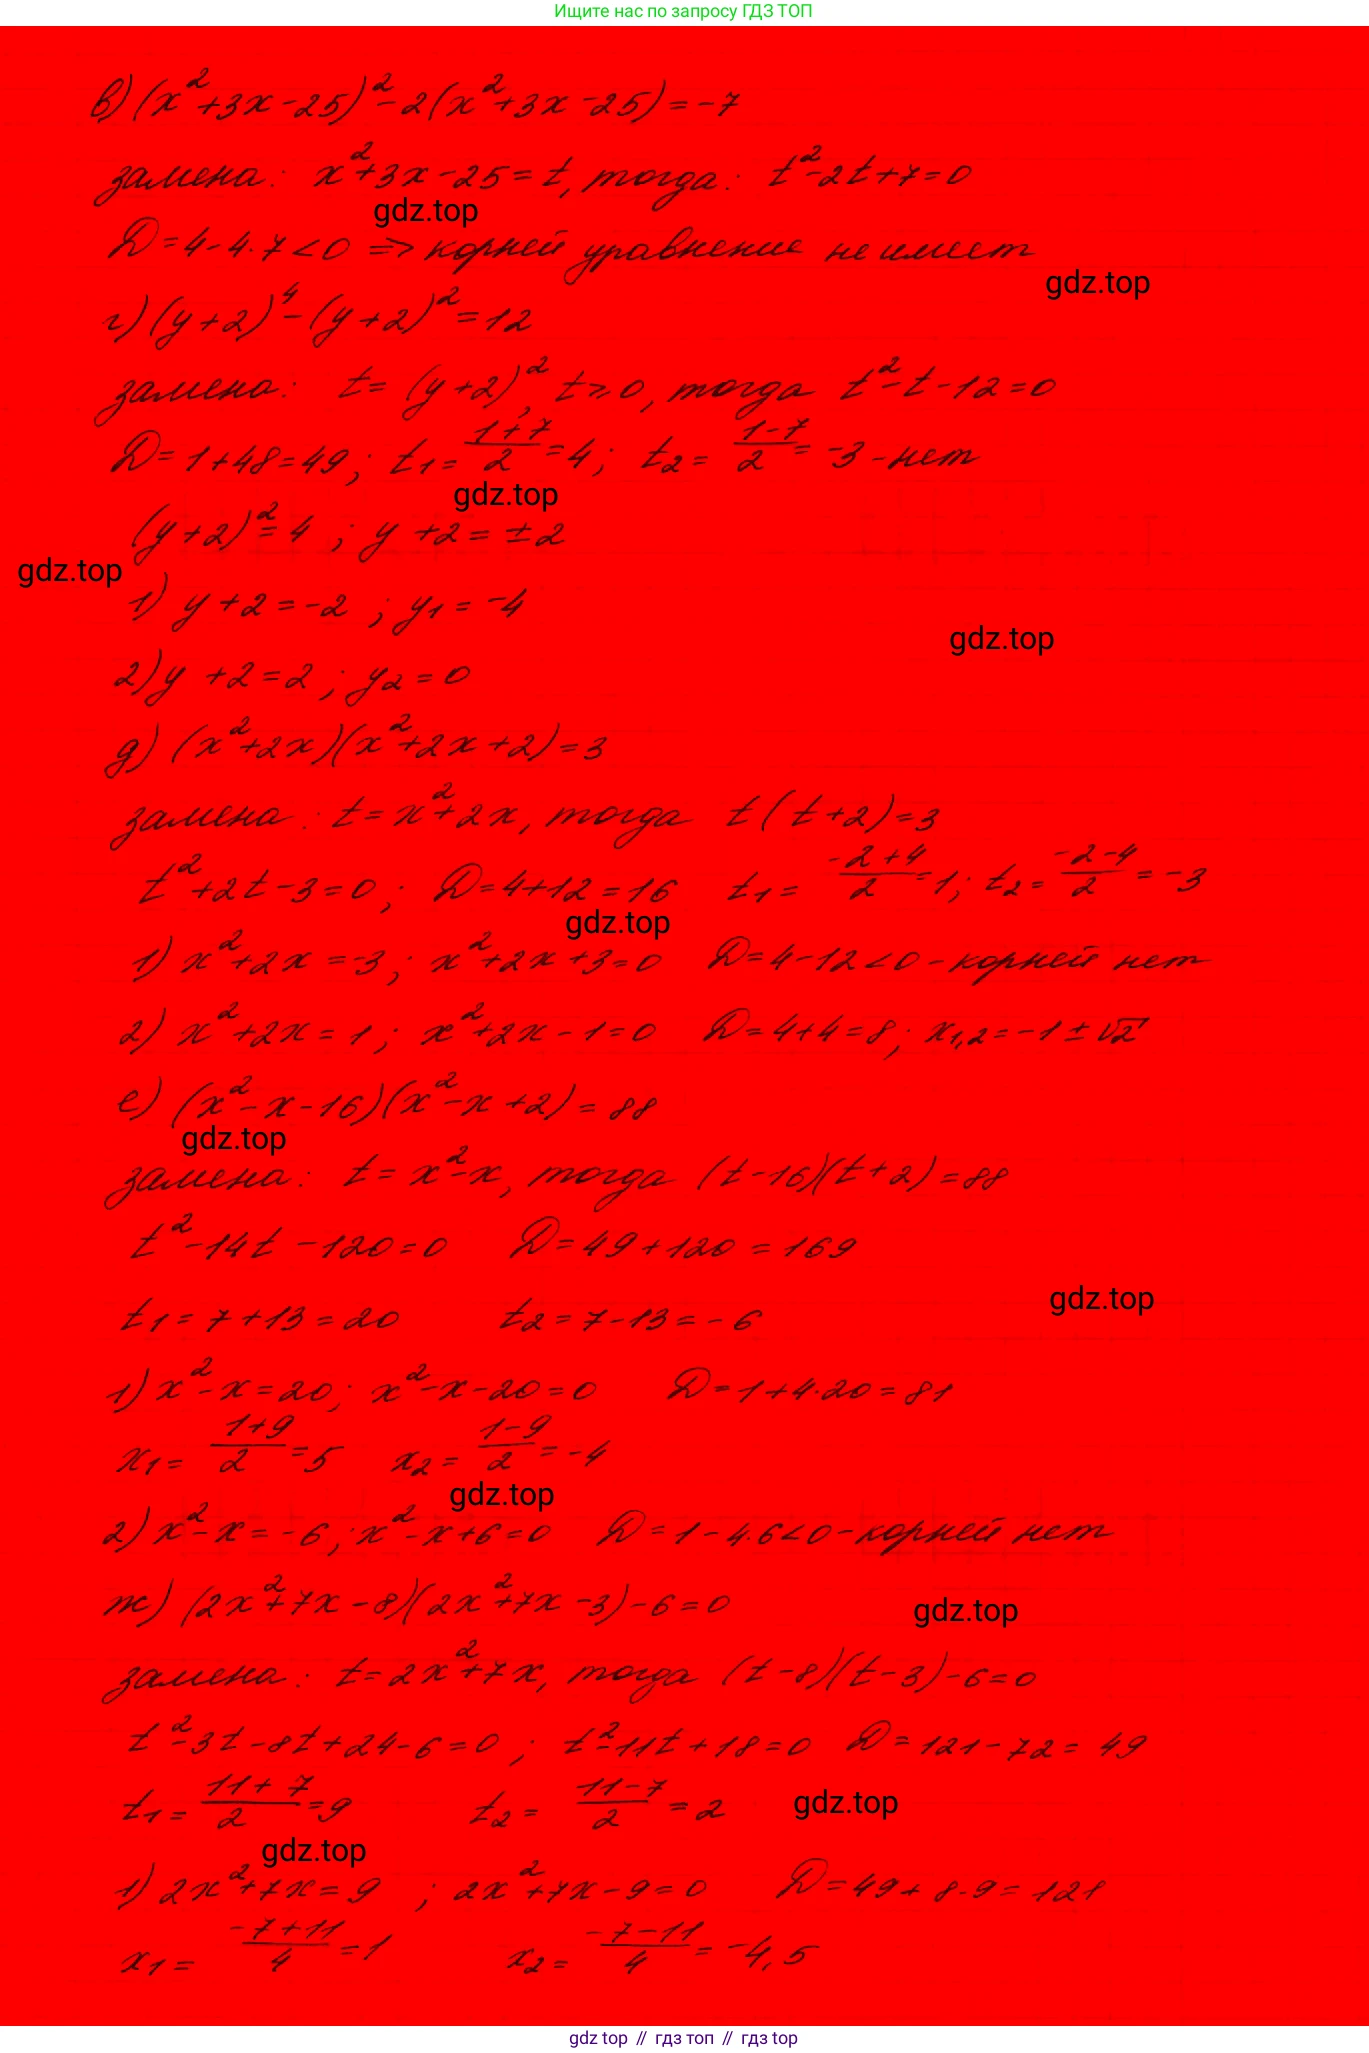 Ищите нас по запросу ГДЗ ТОП
в) (x²+3x-25)²-2(x²+3x-25)=-7
замена: x²+3x-25=t, тогда: t²-2t+7=0
gdz.top
D=4-4·7<0 => корней уравнение не имеет
gdz.top
г) (y+2)⁴-(y+2)²=12
замена: t=(y+2)², t≥0, тогда t²-t-12=0
D=1+48=49; t₁=(1+7)/2=4; t₂=(1-7)/2=-3-нет
gdz.top
(y+2)²=4; y+2=±2
gdz.top
1) y+2=-2; y₁=-4
gdz.top
2) y+2=2; y₂=0
д) (x²+2x)(x²+2x+2)=3
замена: t=x²+2x, тогда t(t+2)=3
t²+2t-3=0; D=4+12=16 t₁=(-2+4)/2=1; t₂=(-2-4)/2=-3
gdz.top
1) x²+2x=-3; x²+2x+3=0 D=4-12<0-корней нет
2) x²+2x=1; x²+2x-1=0 D=4+4=8; x₁,₂=-1±√2
е) (x²-x-16)(x²-x+2)=88
gdz.top
замена: t=x²-x, тогда (t-16)(t+2)=88
t²-14t-120=0 D=49+120=169
gdz.top
t₁=7+13=20 t₂=7-13=-6
1) x²-x=20; x²-x-20=0 D=1+4·20=81
x₁=(1+9)/2=5 x₂=(1-9)/2=-4
gdz.top
2) x²-x=-6; x²-x+6=0 D=1-4·6<0-корней нет
ж) (2x²+7x-8)(2x²+7x-3)-6=0
gdz.top
замена: t=2x²+7x, тогда (t-8)(t-3)-6=0
t²-3t-8t+24-6=0; t²-11t+18=0 D=121-72=49
t₁=(11+7)/2=9 t₂=(11-7)/2=2
gdz.top
gdz.top
1) 2x²+7x=9; 2x²+7x-9=0 D=49+8·9=121
x₁=(-7+11)/4=1 x₂=(-7-11)/4=-4,5
gdz top // гдз топ // гдз top